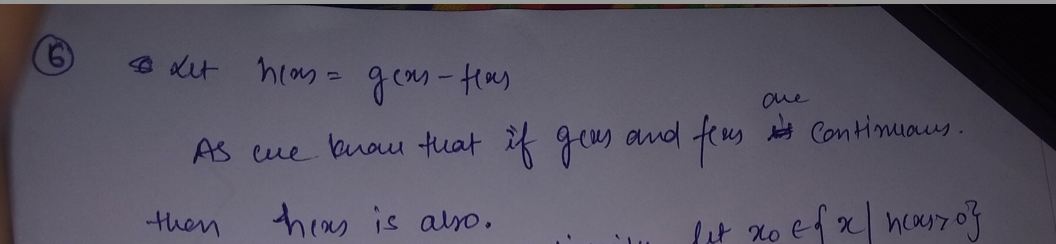 6 Let h(x) = g(x) - f(x)
As we know that if g(x) and f(x) are continuous.
then h(x) is also. let x0 ∈ {x | h(x) > 0}